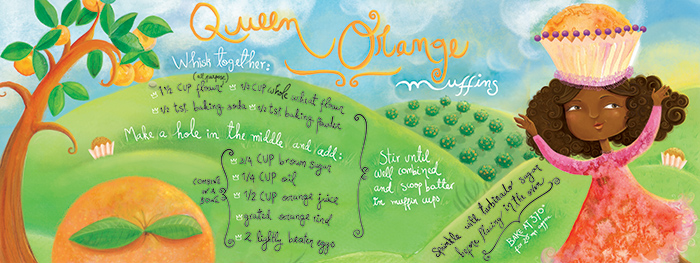 Queen Orange
muffins
Whisk together:
(all purpose)
1 ½ cup flour
1/2 cup whole wheat flour
1/2 tst. baking soda
½ tst. baking powder
Make a hole in the middle and add:
COMBINE IN A
3/4 cup brown sugar
1/4 cup oil
1/2 cup orange juice
grated orange rind
2 lightly beaten eggs
Stir until
well combined
and scoop batter
in muffin cups.
Sprinkle with turbinado sugar
before placing in the oven
BAKE AT 350°
for 20